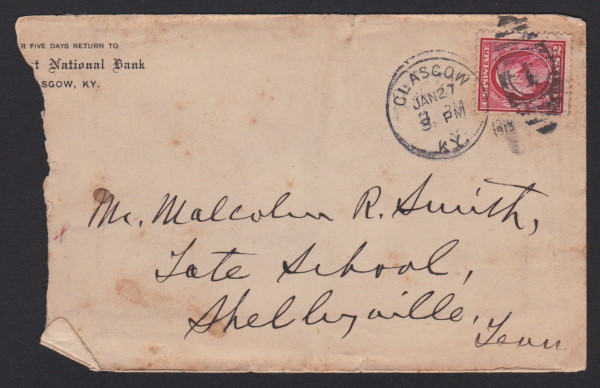 R FIVE DAYS RETURN TO
t National Bank
SGOW, KY.
GLASGOW
JAN 27
PM
KY.
1913
U.S. POSTAGE
Mr. Malcolm R. Smith,
Tate School,
Shelbyville,
Tenn